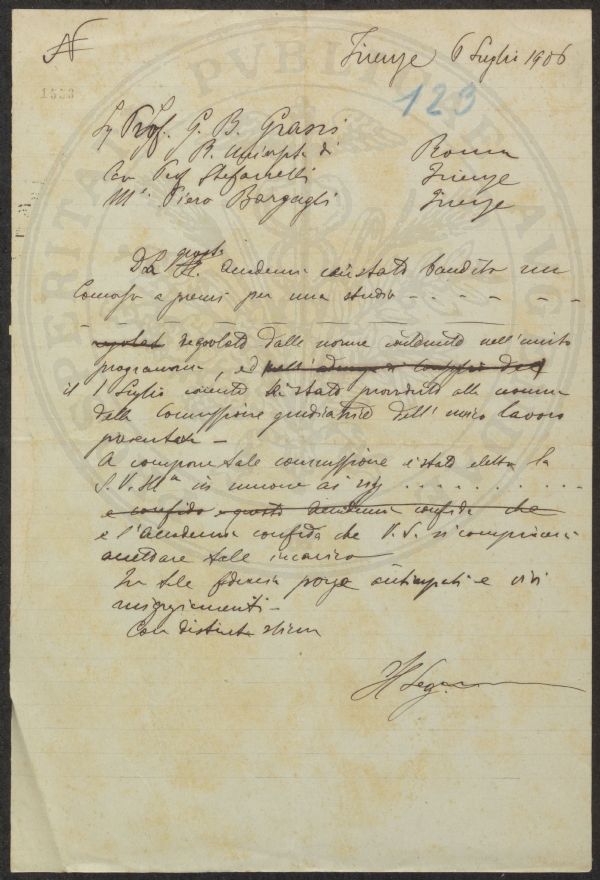 Firenze 6 Luglio 1906
1333
123
Sig Prof. G. B. Grassi
R. Università di Roma
Cav Prof Stefanelli Firenze
M.se Piero Bargagli Firenze
questa
Da Accademia è stato bandito un
Concorso a premi per uno studio - - - - - -
regolato dalle norme nell'unito
programma, ed nell'adunanza di Consiglio del
il 1 Luglio corrente è stato provveduto alla nomina
della Commissione giudicatrice dell'unico lavoro
presentato -
A comporre tale commissione è stato eletta la
S. V. Ill.ma in unione ai sigg . . . . . . . . .
e confido questa Accademia confida che
e l'Accademia confida che V. S. si compiacerà
accettare tale incarico
In tale fiducia porge anticipati e vivi
ringraziamenti -
Con distinta stima
Il Seg.